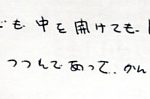 も 中を開けても
つつんであって、かん